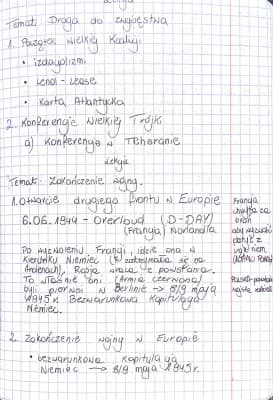 Lekcja
Temat: Droga do zwycięstwa
1. Początek Wielkiej Koalicji
• izolacjonizm
• Lend-Lease
• Karta Atlantycka
2. Konferencje Wielkiej Trójki
a) Konferencja w Teheranie
Lekcja
Temat: Zakończenie wojny.
1. Otwarcie drugiego frontu w Europie
6.06.1944 - Overloud (D-DAY)
(Francja) Normandia
Po wyzwoleniu Francji, idzie ona w
kierunku Niemiec ( zatrzymała się na
Ardenach), Rosja wraca z powstania.
To właśnie oni (Armia czerwona)
byli pierwsi w Berlinie → 8/9 maja
1945r. Bezwarunkowa Kapitulacja
Niemiec.
Francja
chciała za
aby
2. Zakończenie wojny w Europie
• bezwarunkowa kapitulacja
Niemiec → 8/9 maja 1945r.